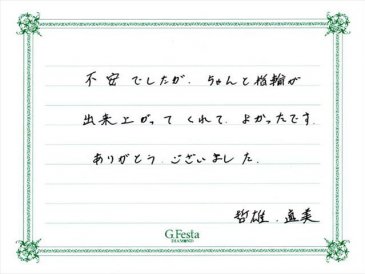 不安でしたが、ちゃんと指輪が
出来上がってくれて、よかったです。
ありがとう、ございました。
哲雄、直美
G.Festa
DIAMOND